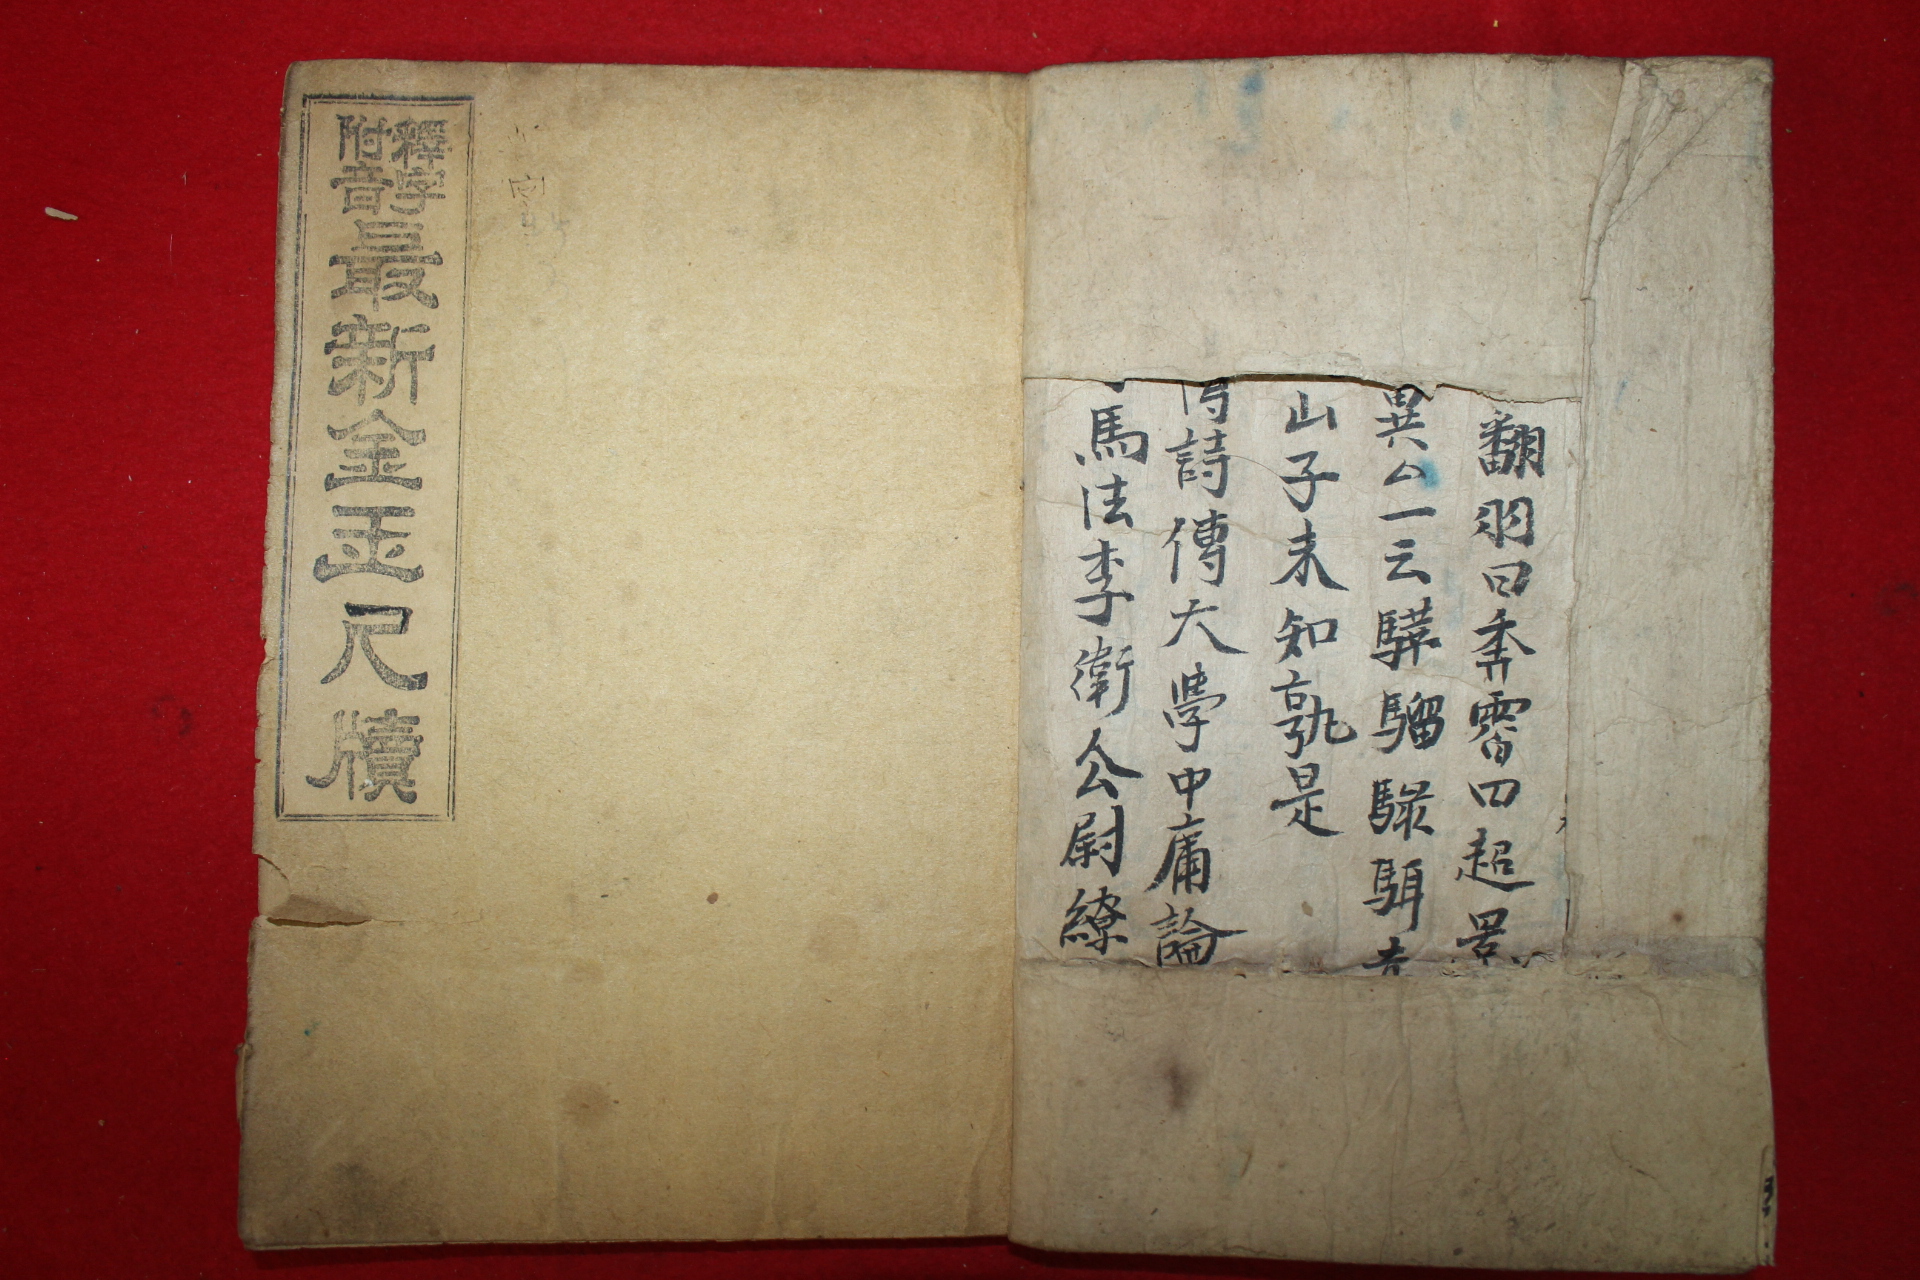 翻羽曰奔霄曰超景
異一云驊騮騄駬
山子未知孰是
詩傳大學中庸論
馬法李衛公尉繚
釋字
附音
最新金玉尺牘